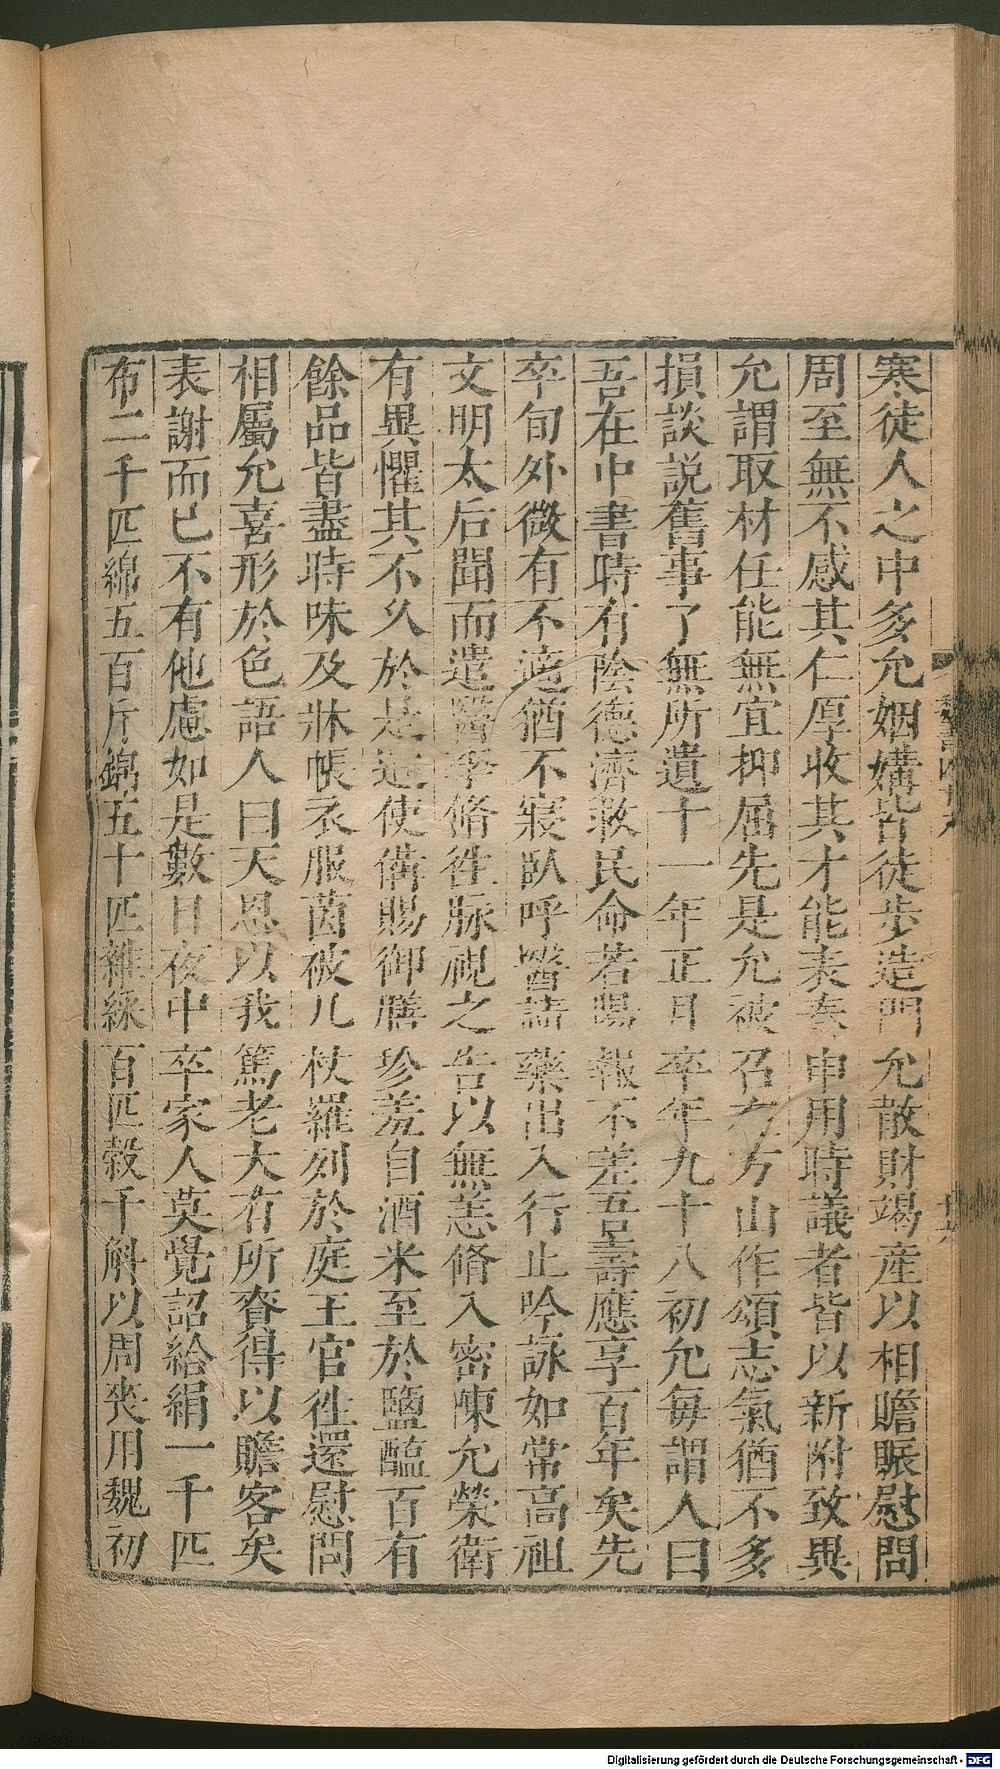 寒徒人之中多允姻媾皆徒步造門允散財竭產以相贍賑慰問
周至無不感其仁厚收其才能表奏申用時議者皆以新附致異
允謂取材任能無宜抑屈先是允被召在方山作頌志氣猶不多
損談説舊事了無所遺十一年正月卒年九十八初允毎謂人曰
吾在中書時有陰德濟救民命若陽報不差吾壽應享百年矣先
卒旬外微有不適猶不寢臥呼醫請藥出入行止吟詠如常高祖
文明太后聞而遣醫李脩徃脉視之告以無恙脩入密陳允榮衛
有異懼其不久於是遣使備賜御膳珍羞自酒米至於鹽醢百有
餘品皆盡時味及牀帳衣服茵被几杖羅列於庭王官徃還慰問
相屬允喜形於色語人曰天恩以我篤老大有所賚得以贍客矣
表謝而已不有他慮如是數日夜中卒家人莫覺詔給絹一千匹
布二千匹綿五百斤錦五十匹雜綵百匹穀千斛以周喪用魏初
Digitalisierung gefördert durch die Deutsche Forschungsgemeinschaft - DFG